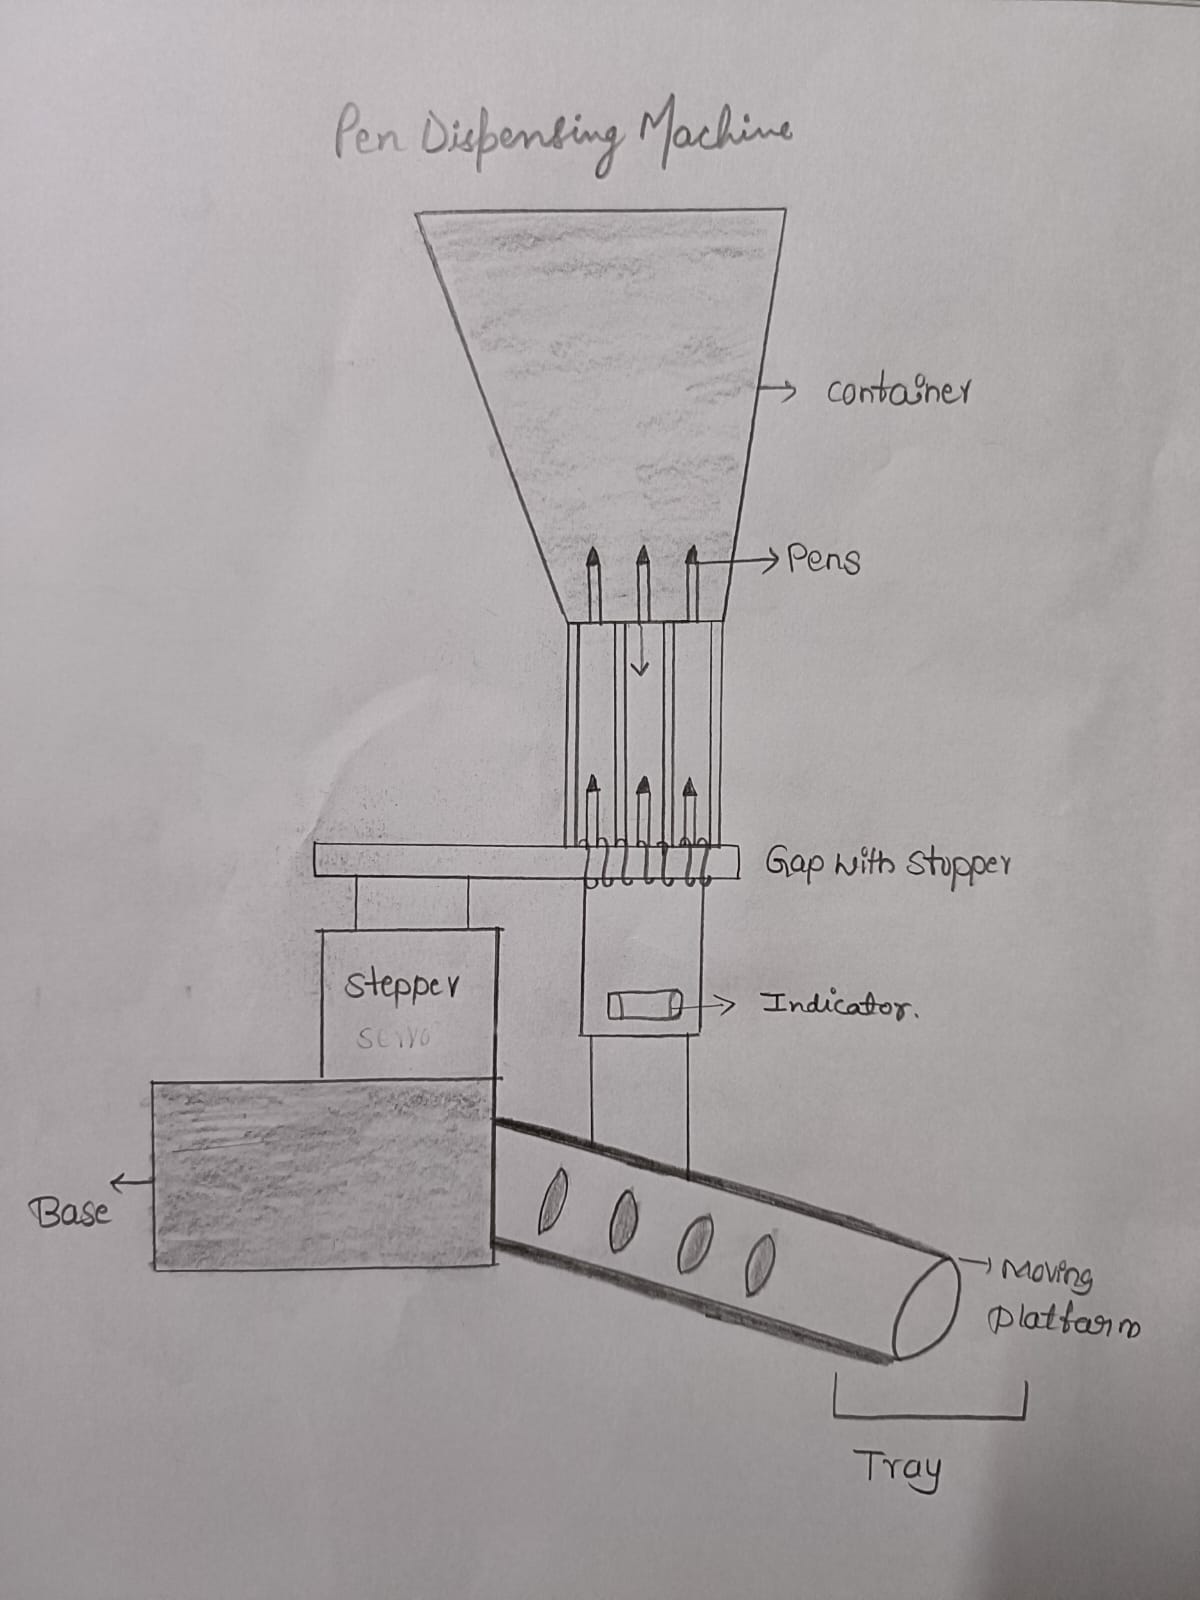 Pen Dispensing Machine
Container
Pens
Gap with Stopper
Stepper
Servo
Indicator.
Base
Moving
Platform
Tray